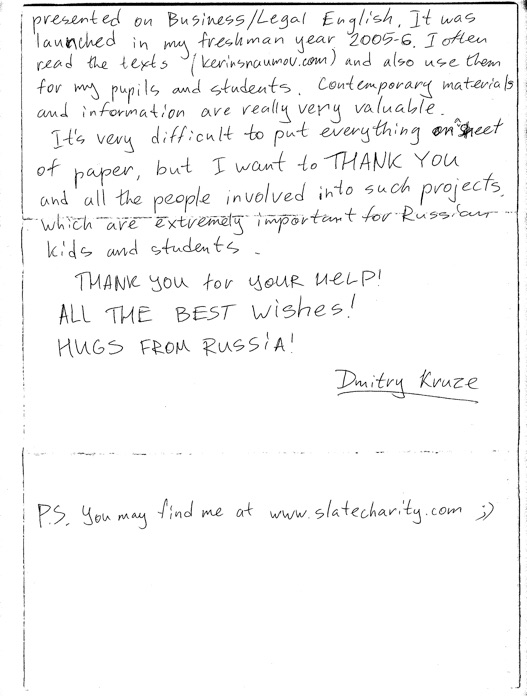 presented on Business/Legal English. It was
launched in my freshman year 2005-6. I often
read the texts (kerinsnaumov.com) and also use them
for my pupils and students. Contemporary materials
and information are really very valuable.
It's very difficult to put everything on sheet
of paper, but I want to THANK YOU
and all the people involved into such projects,
which are extremely important for Russian
kids and students.
THANK you for your HELP!
ALL THE BEST wishes!
HUGS FROM RUSSiA!
Dmitry Kruze
P.S. You may find me at www.slatecharity.com ;)